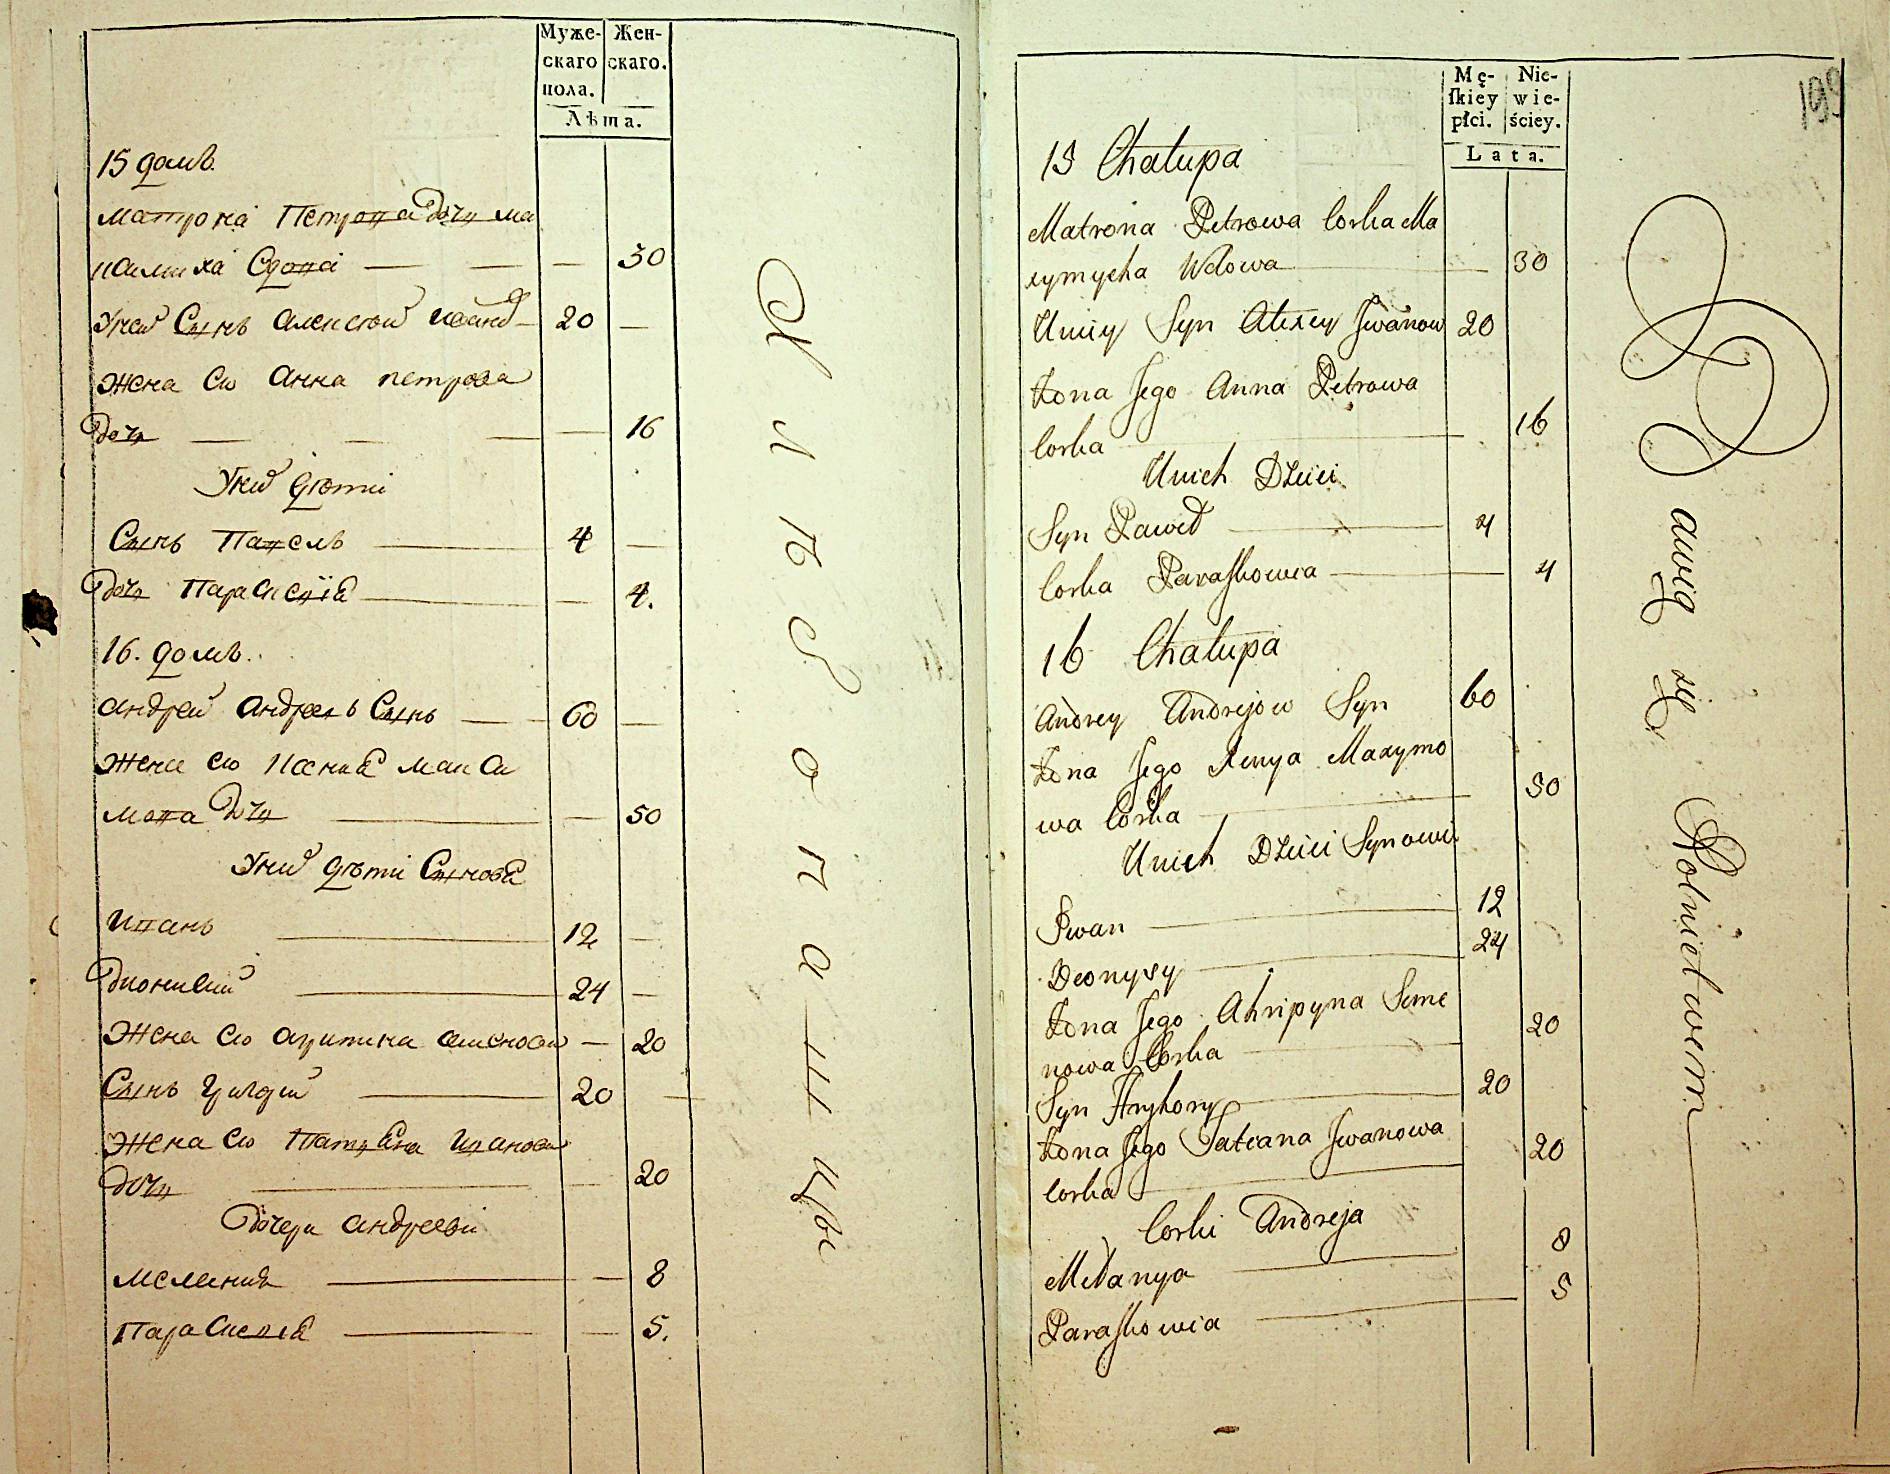 Муже-
скаго
пола.
Жен-
скаго.
Лѣта.
15 домъ
Матрона Петрова дочь Ма
ксимиха вдова — — — 30
У неи Сынъ Алексѣй Іоанъ — 20 —
Жена его Анна Петрова
дочь — — — — 16
У нихъ дѣти
Сынъ Павелъ — 4 —
дочь Параскевія — — 4.
16. домъ.
Андрей Андреевъ Сынъ — 60 —
Жена его Ксенія Макси
мова дочь — — 50
У нихъ дѣти Сыновя
Иванъ — 12 —
Дионисий — 24 —
Жена его Агрипина Семенова — 20
Сынъ Григорий — 20 —
Жена его Татіана Иванова
дочь — — 20
дочери Андреевы
Мелания — — 8
Параскевія — — 5.
Хлѣбопашцы
Mę-
skiey
płci.
Nie-
wie-
ściey.
Lata.
199
15 Chałupa
Matrona Petrowa Corka Ma
xymycha Wdowa — 30
U niey Syn Alexey Jwanow 20
Żona Jego Anna Petrowa
Corka — 16
U nich Dzieci
Syn Paweł — 4
Corka Paraskowia — 4
16 Chałupa
Andrey Andrejow Syn 60
Żona Jego Xenya Maxymo
wa Corka — 50
U nich Dzieci Synowie
Jwan — 12
Deonyzy — 24
Żona Jego Ahripyna Seme
nowa Corka — 20
Syn Hryhory — 20
Żona Jego Tatiana Jwanowa
Corka — 20
Corki Andreja
Mełanya — 8
Paraskowia — 5
Bawią się Rolnictwem